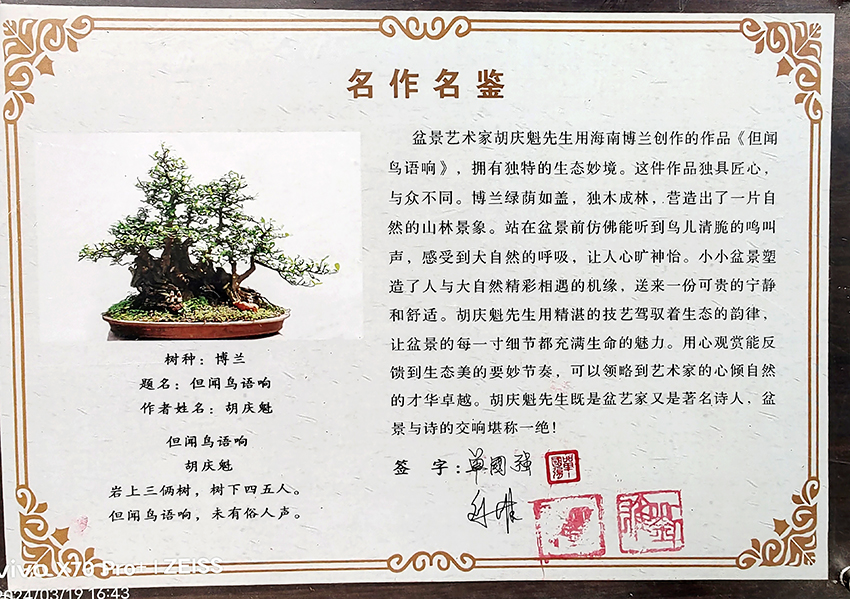 名作名鉴
盆景艺术家胡庆魁先生用海南博兰创作的作品《但闻
鸟语响》，拥有独特的生态妙境。这件作品独具匠心，
与众不同。博兰绿荫如盖，独木成林，营造出了一片自
然的山林景象。站在盆景前仿佛能听到鸟儿清脆的鸣叫
声，感受到大自然的呼吸，让人心旷神怡。小小盆景塑
造了人与大自然精彩相遇的机缘，送来一份可贵的宁静
和舒适。胡庆魁先生用精湛的技艺驾驭着生态的韵律，
让盆景的每一寸细节都充满生命的魅力。用心观赏能反
馈到生态美的要妙节奏，可以领略到艺术家的心倾自然
的才华卓越。胡庆魁先生既是盆艺家又是著名诗人，盆
景与诗的交响堪称一绝！
签 字：单國强
树种：博兰
题名：但闻鸟语响
作者姓名：胡庆魁
但闻鸟语响
胡庆魁
岩上三俩树，树下四五人。
但闻鸟语响，未有俗人声。
vivo X70 Pro+ | ZEISS
2024/03/19 16:43